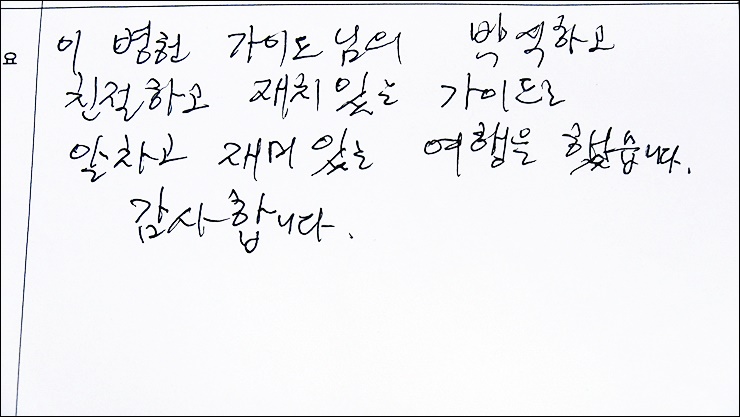 요
이 병헌 가이드님의 박식하고
친절하고 재치있는 가이드로
알차고 재미있는 여행을 했습니다.
감사합니다.